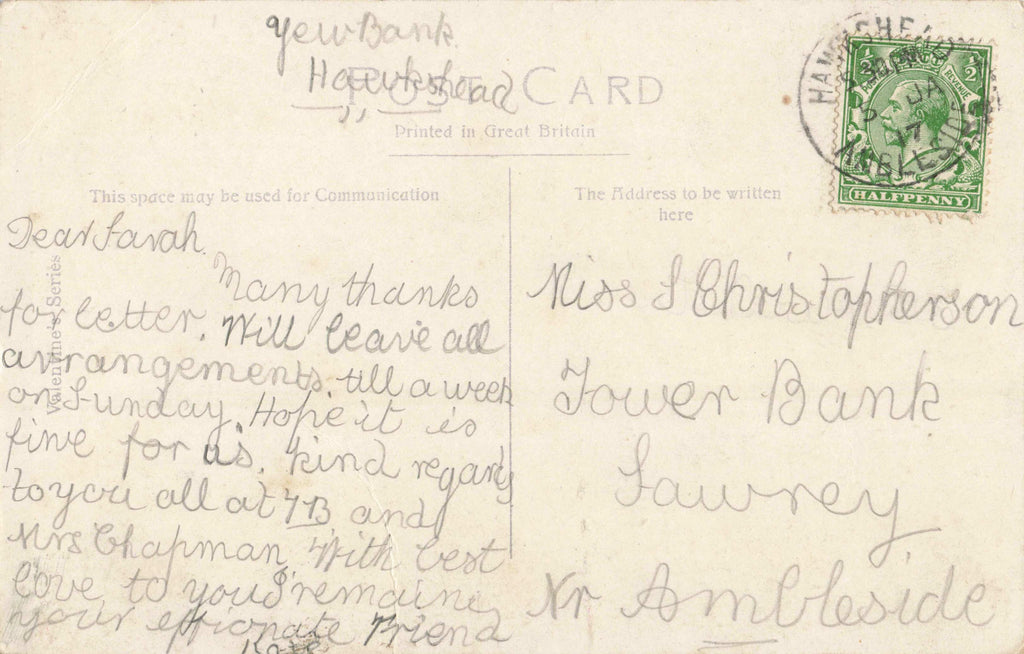 Yew Bank
Hawkshead
POST CARD
Printed in Great Britain
This space may be used for Communication
The Address to be written
here
Valentine's Series
HAWKSHEAD
JA
17
AMBLESIDE
POSTAGE
REVENUE
1/2
1/2
HALFPENNY
Dear Sarah.
Many thanks
for letter. Will leave all
arrangements till a week
on Sunday. Hope it is
fine for us. kind regards
to you all at TB and
Mrs Chapman. With best
love to you I remaine
your effionate Friend
Kate
Miss S Christopherson
Tower Bank
Sawrey
Nr Ambleside